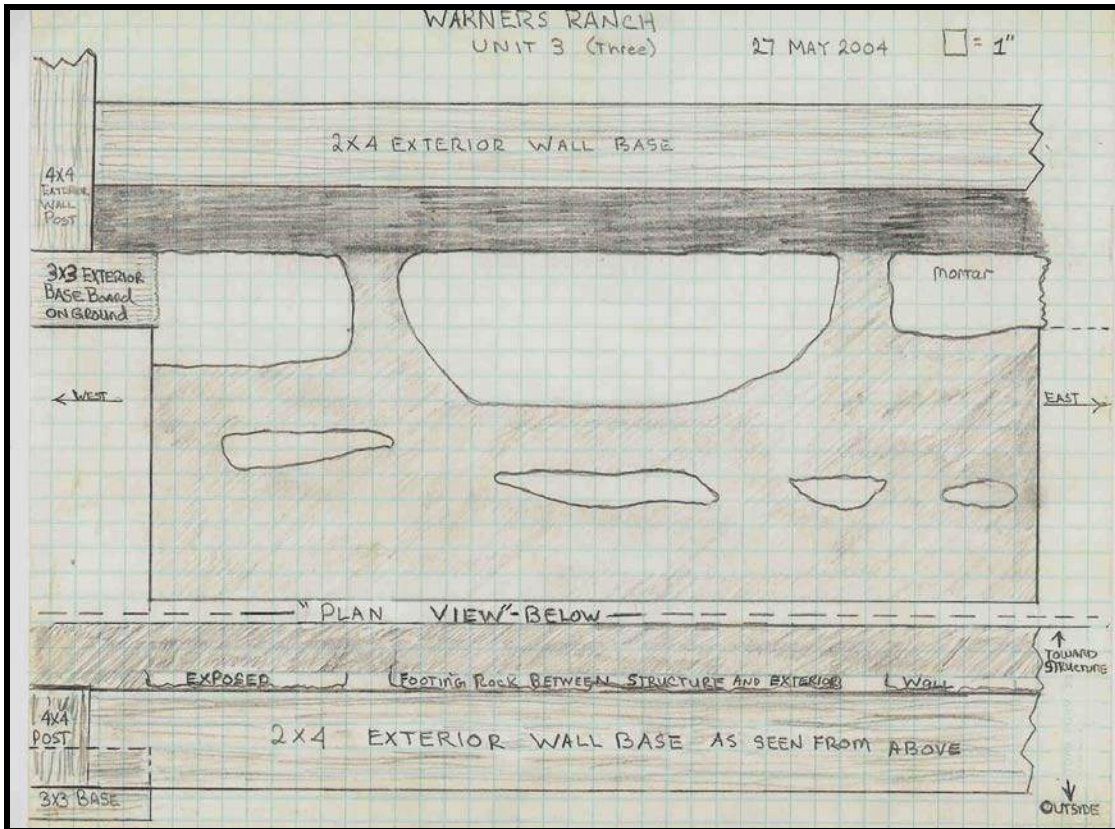 WARNERS RANCH
UNIT 3 (Three)
27 MAY 2004
= 1"
2X4 EXTERIOR WALL BASE
4X4
EXTERIOR
WALL
POST
3X3 EXTERIOR
BASE Board
ON GROUND
mortar
WEST
EAST
"PLAN VIEW"-BELOW
TOWARD
STRUCTURE
EXPOSED FOOTING ROCK BETWEEN STRUCTURE AND EXTERIOR WALL
4X4
POST
2X4 EXTERIOR WALL BASE AS SEEN FROM ABOVE
3X3 BASE
OUTSIDE